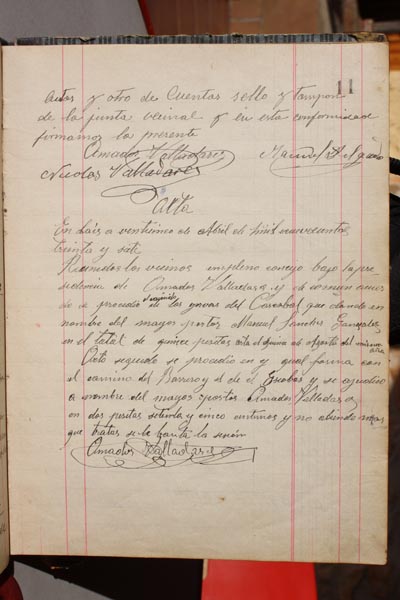 11
actas y otro de Cuentas sello y tampon
de la junta vecinal y en esta conformidad
firmamos la presente
Amador Valladares Manuel Delgado
Nicolas Valladares
Acta
En Lais a venticinco de Abril de mil novecientos
treinta y siete
Reunidos los vecinos en pleno concejo bajo la pre
sidencia de Amador Valladares y de comun acuer
do se procedio de las yervas del que dando en
nombre del mayor postor Manuel Sanchez Gonzales
en el total de quince pesetas asta el quince de Agosto del mismo
año
Acto seguido se procedio en y gual forma con
el camino del Barrero y d de el Escobar y se ajudico
a nombre del mayor postor Amador Valladares
en dos pesetas setenta y cinco centimos y no abiendo mas
que tratar se lebanta la sesion
Amador Valladares